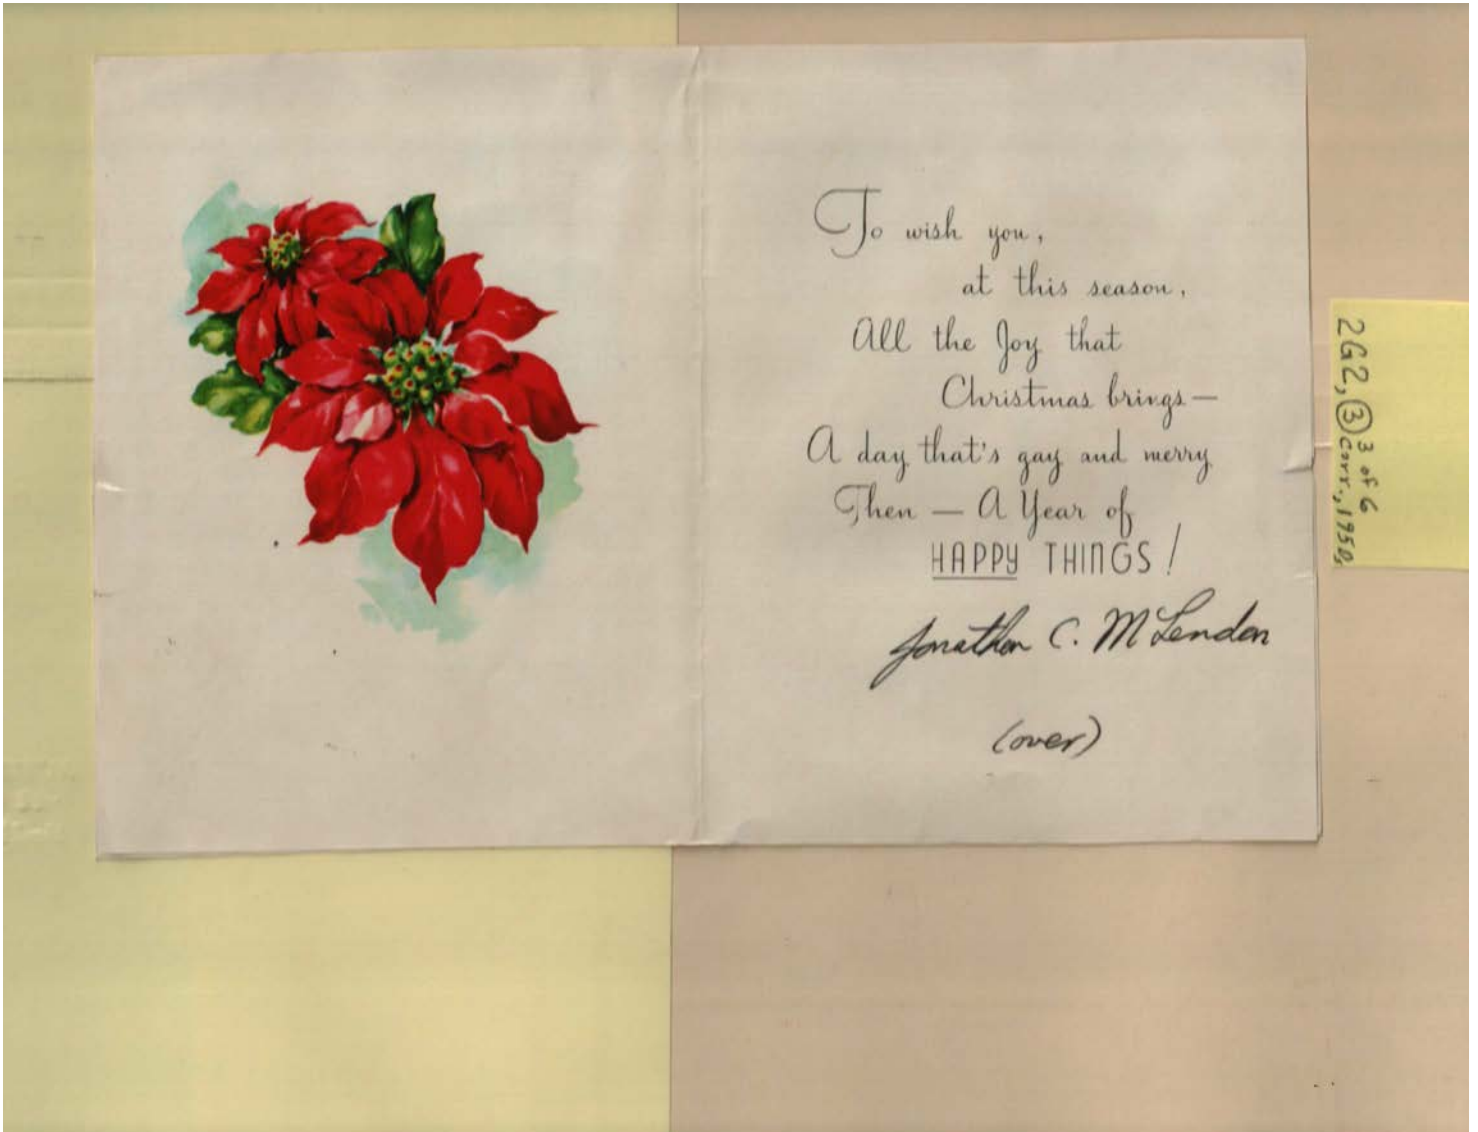 To wish you,
at this season,
All the Joy that
Christmas brings—
A day that's gay and merry
Then — A Year of
HAPPY THINGS!
Jonathon C. McLendon
(over)
2G2, ③ 3 of 6
corr., 1950s